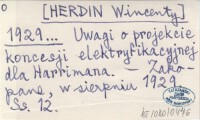 [HERDIN Wincenty]
1929... Uwagi o projekcie
koncesji elektryfikacyjnej
dla Harrimana. — Zako-
pane, w sierpniu 1929
Ss. 12.